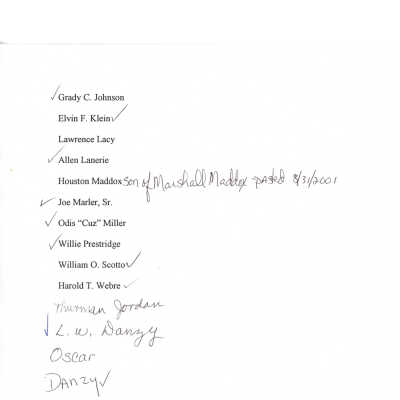 Grady C. Johnson
Elvin F. Klein
Lawrence Lacy
Allen Lanerie
Houston Maddox son of Marshall Maddox pasted 8/31/2001
Joe Marler, Sr.
Odis “Cuz” Miller
Willie Prestridge
William O. Scotto
Harold T. Webre
Thurman Jordan
L. W. Danzy
Oscar
Danzy